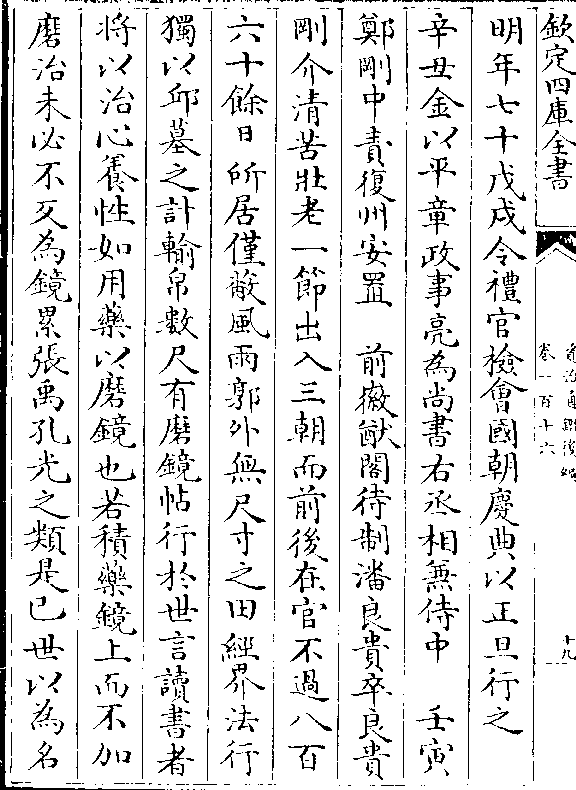 欽定四庫全書
資治通鑑後編
卷一百十六
十九
明年七十戊戌令禮官檢會國朝慶典以正旦行之
辛丑金以平章政事亮為尚書右丞相兼侍中　壬寅
鄭剛中責復州安置　前徽猷閣待制潘良貴卒良貴
剛介清苦壯老一節出入三朝而前後在官不過八百
六十餘日所居僅蔽風雨郭外無尺寸之田經界法行
獨以邱墓之計輸帛數尺有磨鏡帖行於世言讀書者
將以治心養性如用藥以磨鏡也若積藥鏡上而不加
磨治未必不反為鏡累張禹孔光之類是已世以為名